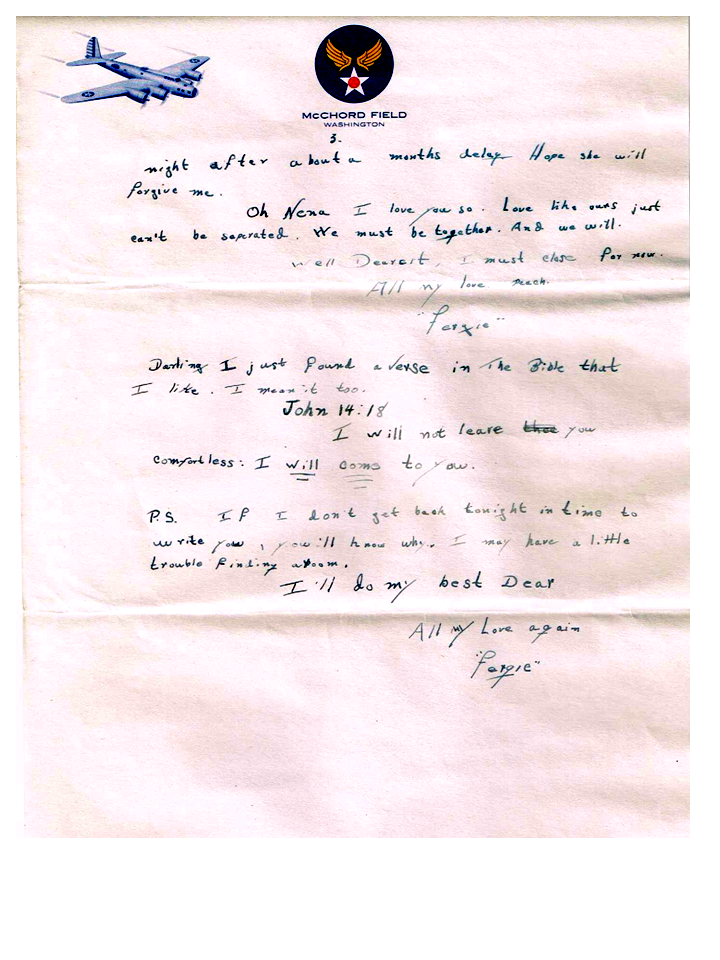 McCHORD FIELD
WASHINGTON
3.
night after about a months delay Hope she will
forgive me.
Oh Nena I love you so. Love like ours just
can't be seperated. We must be together. And we will.
Well Dearest, I must close for now.
All my love
"Fergie"
Darling I just found a verse in The Bible that
I like. I mean it too.
John 14:18
I will not leave thee you
comfortless: I will come to you.
P.S. If I don't get back tonight in time to
write you, you'll know why. I may have a little
trouble finding a room.
I'll do my best Dear
All my Love again
"Fergie"